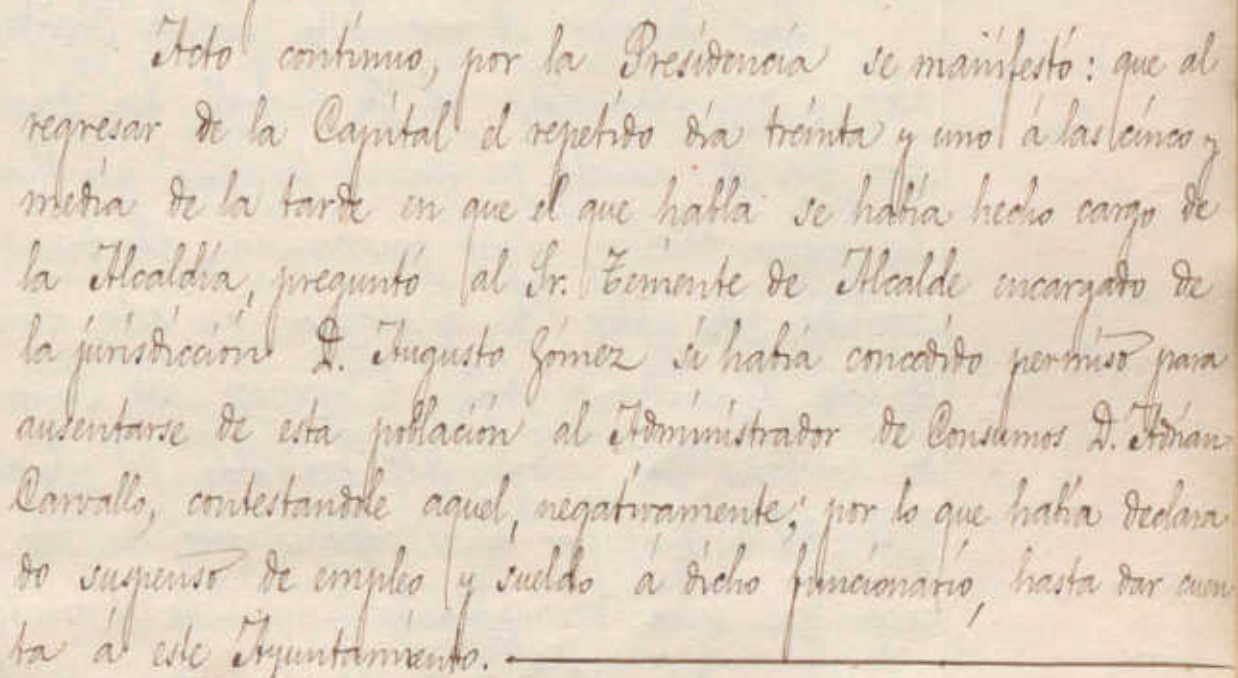 Acto continuo, por la Presidencia se manifestó: que al
regresar de la Capital el repetido día treinta y uno á las cinco y
media de la tarde en que el que habla se había hecho cargo de
la Alcaldía, preguntó al Sr. Teniente de Alcalde encargado de
la jurisdicción D. Augusto Gómez si había concedido permiso para
ausentarse de esta población al Administrador de Consumos D. Adrian
Carvallo, contestandole aquel, negativamente; por lo que había declara
do suspenso de empleo y sueldo á dicho funcionario, hasta dar cuen
ta á este Ayuntamiento.